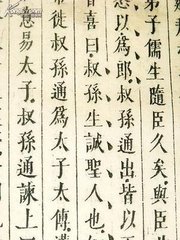 弟子儒生隨臣久矣與臣
悉以爲郎叔孫通出皆以
喜曰叔孫生誠聖人也
徙叔孫通爲太子太傅漢
意易太子叔孫通諫上曰